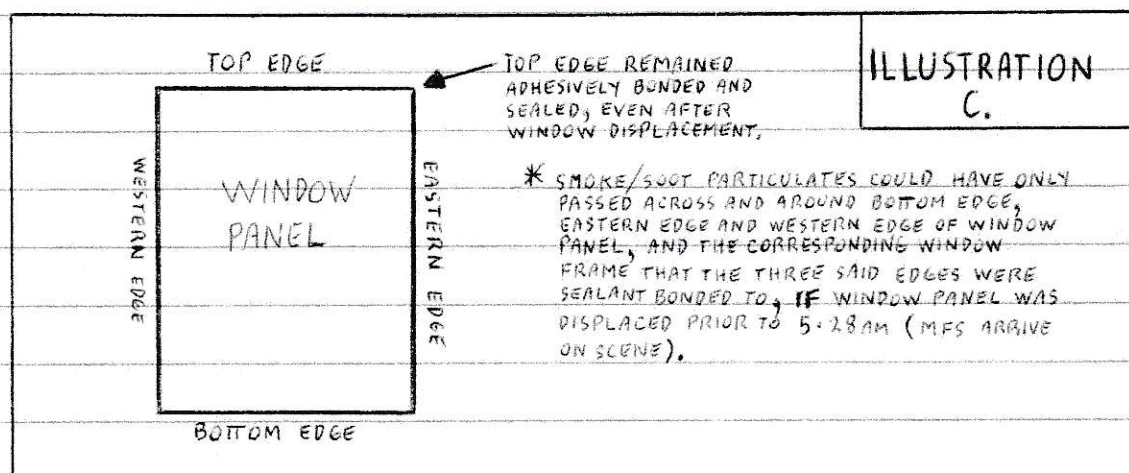 ILLUSTRATION
C.
TOP EDGE
TOP EDGE REMAINED
ADHESIVELY BONDED AND
SEALED, EVEN AFTER
WINDOW DISPLACEMENT.
WESTERN EDGE
WINDOW
PANEL
EASTERN EDGE
BOTTOM EDGE
* SMOKE/SOOT PARTICULATES COULD HAVE ONLY
PASSED ACROSS AND AROUND BOTTOM EDGE,
EASTERN EDGE AND WESTERN EDGE OF WINDOW
PANEL, AND THE CORRESPONDING WINDOW
FRAME THAT THE THREE SAID EDGES WERE
SEALANT BONDED TO, IF WINDOW PANEL WAS
DISPLACED PRIOR TO 5.28AM (MFS ARRIVE
ON SCENE).